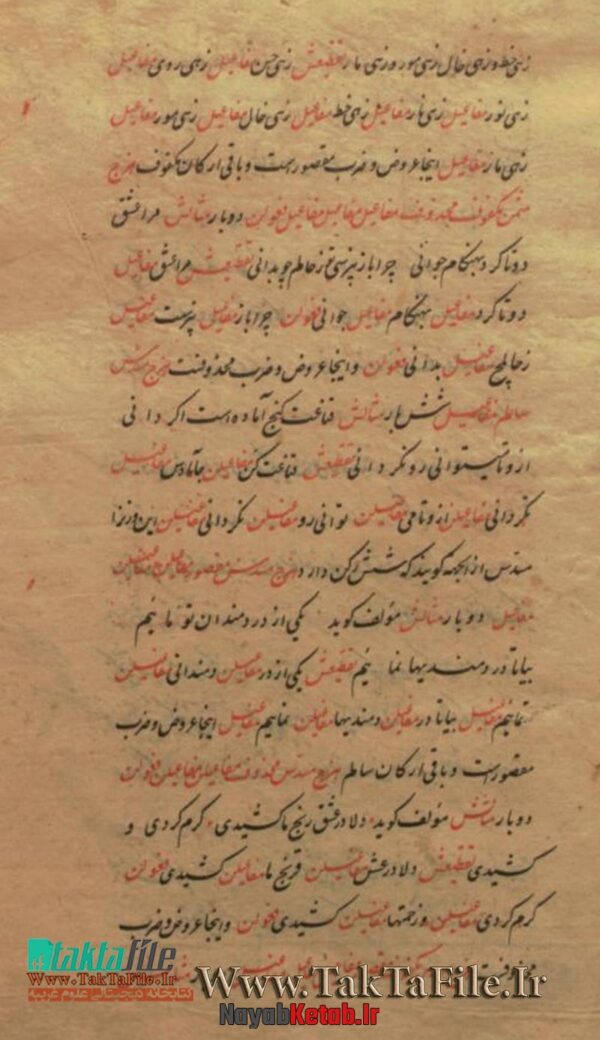 زهی خط و زهی خال زهی مور و زهی مار تقطیعش زهی حسن مفاعیل زهی روی مفاعیل
زهی نور مفاعیل زهی نار مفاعیل زهی خط مفاعیل زهی خال مفاعیل زهی مور مفاعیل
زهی مار مفاعیل اینجا عروض و ضرب مقصور است و باقی ارکان مکفوف هزج
مثمن مکفوف محذوف مفاعیل مفاعیل مفاعیل فعولن دو بار مثالش مرا عشق
دو تا کرد بهنگام جوانی چرا باز نپرسی تو ز حالم چو بدانی تقطیعش مرا عشق مفاعیل
دو تا کرد مفاعیل بهنگام مفاعیل جوانی فعولن چرا باز مفاعیل نپرست مفاعیل
ز حالمچ مفاعیل بدانی فعولن و اینجا عروض و ضرب محذوفست هزج مسدس
سالم مفاعیلن شش بار مثالش قناعت کنج آباد است اگر دانی
ازو تا میتوانی رو نگردانی تقطیعش قناعت کن مفاعیلن جآبادس مفاعیلن
گردانی مفاعیلن ازو تا می مفاعیلن توانی رو مفاعیلن نگردانی مفاعیلن این وزنرا
مسدس از آنجهة گویند که شش رکن دارد هزج مسدس مقصور مفاعیلن مفاعیلن
مفاعیل دو بار مثالش مؤلف گوید یکی از دردمندان تو مائیم
بیا تا دردمندیها نمائیم تقطیعش یکی از در مفاعیلن دمندانی مفاعیلن
تمائیم مفاعیل بیا تا در مفاعیلن دمندیها مفاعیلن نمائیم مفاعیل اینجا عروض و ضرب
مقصور است و باقی ارکان سالم هزج مسدس محذوف مفاعیلن مفاعیلن فعولن
دو بار مثالش مؤلف گوید دلا در عشق رنج ما کشیدی کرم کردی و
کشیدی تقطیعش دلا در عش مفاعیلن قرنج ما مفاعیلن کشیدی فعولن
کرم کردی مفاعیلن و زحمتها مفاعیلن کشیدی فعولن و اینجا عروض و ضرب
taktafile
Www.TakTaFile.Ir
Www.TakTaFile.Ir
NayabKetab.Ir